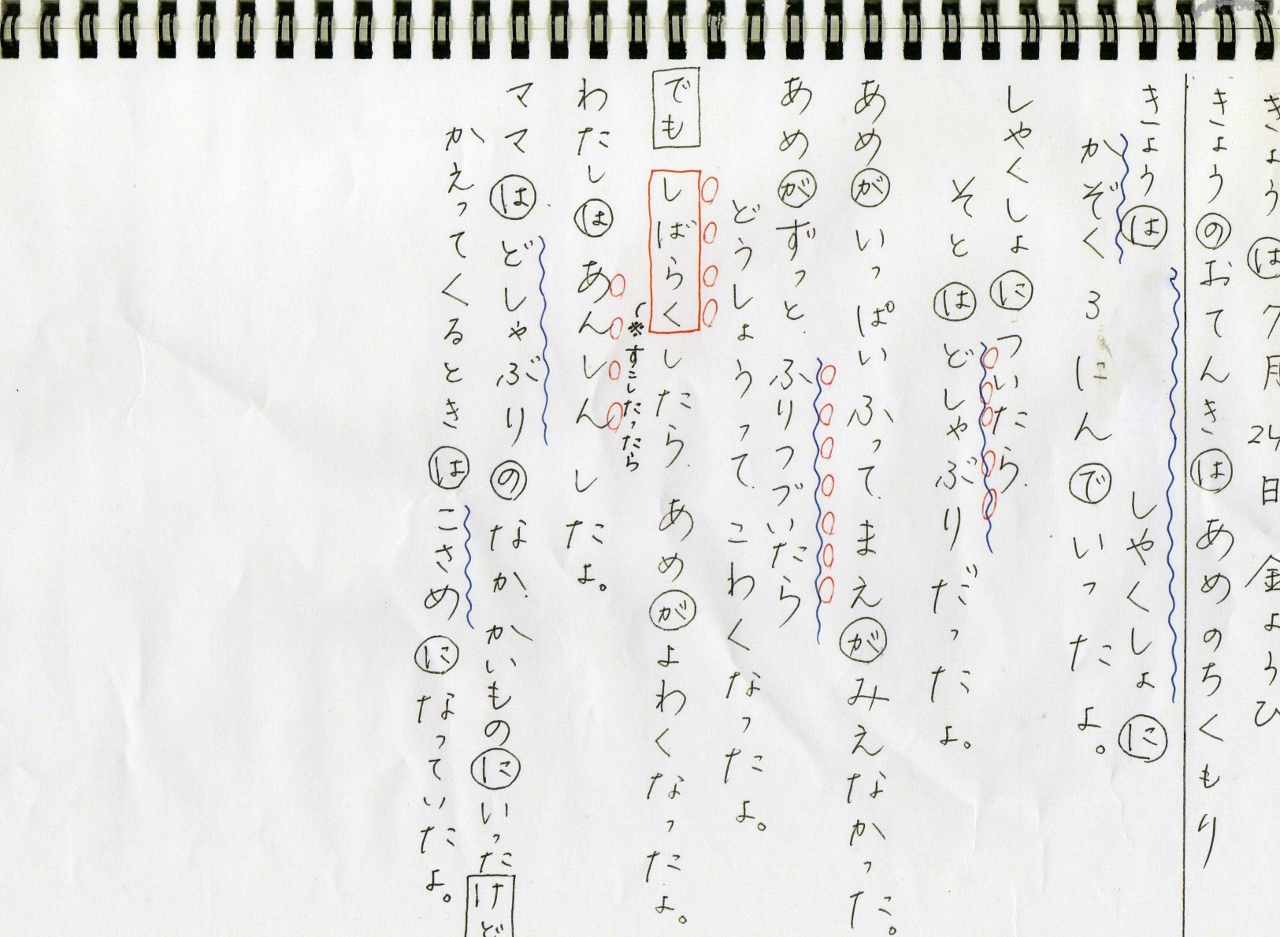 きょうは7月24日金ようび
きょうのおてんきはあめのちくもり
きょうは しやくしょに
かぞく3にんでいったよ。
しやくしょについたら
そとはどしゃぶりだったよ。
あめがいっぱいふってまえがみえなかった。
あめがずっとふりつづいたら
どうしようってこわくなったよ。
でもしばらくしたらあめがよわくなったよ。
※すこしたったら
わたしはあんしんしたよ。
ママはどしゃぶりのなかかいものにいったけど
かえってくるときはこさめになっていたよ。